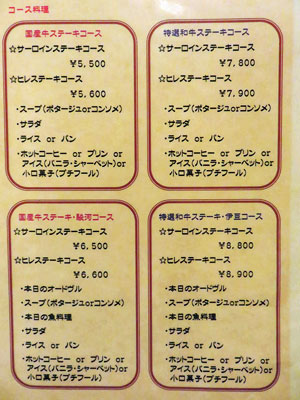 コース料理
国産牛ステーキコース
☆サーロインステーキコース
￥5,500
☆ヒレステーキコース
￥5,600
・スープ(ポタージュorコンソメ)
・サラダ
・ライス or パン
・ホットコーヒー or プリン or
アイス(バニラ・シャーベット)or
小口菓子(プチフール)
特選和牛ステーキコース
☆サーロインステーキコース
￥7,800
☆ヒレステーキコース
￥7,900
・スープ(ポタージュorコンソメ)
・サラダ
・ライス or パン
・ホットコーヒー or プリン or
アイス(バニラ・シャーベット)or
小口菓子(プチフール)
国産牛ステーキ・駿河コース
☆サーロインステーキコース
￥6,500
☆ヒレステーキコース
￥6,600
・本日のオードヴル
・スープ(ポタージュorコンソメ)
・本日の魚料理
・サラダ
・ライス or パン
・ホットコーヒー or プリン or
アイス(バニラ・シャーベット)or
小口菓子(プチフール)
特選和牛ステーキ・伊豆コース
☆サーロインステーキコース
￥8,800
☆ヒレステーキコース
￥8,900
・本日のオードヴル
・スープ(ポタージュorコンソメ)
・本日の魚料理
・サラダ
・ライス or パン
・ホットコーヒー or プリン or
アイス(バニラ・シャーベット)or
小口菓子(プチフール)